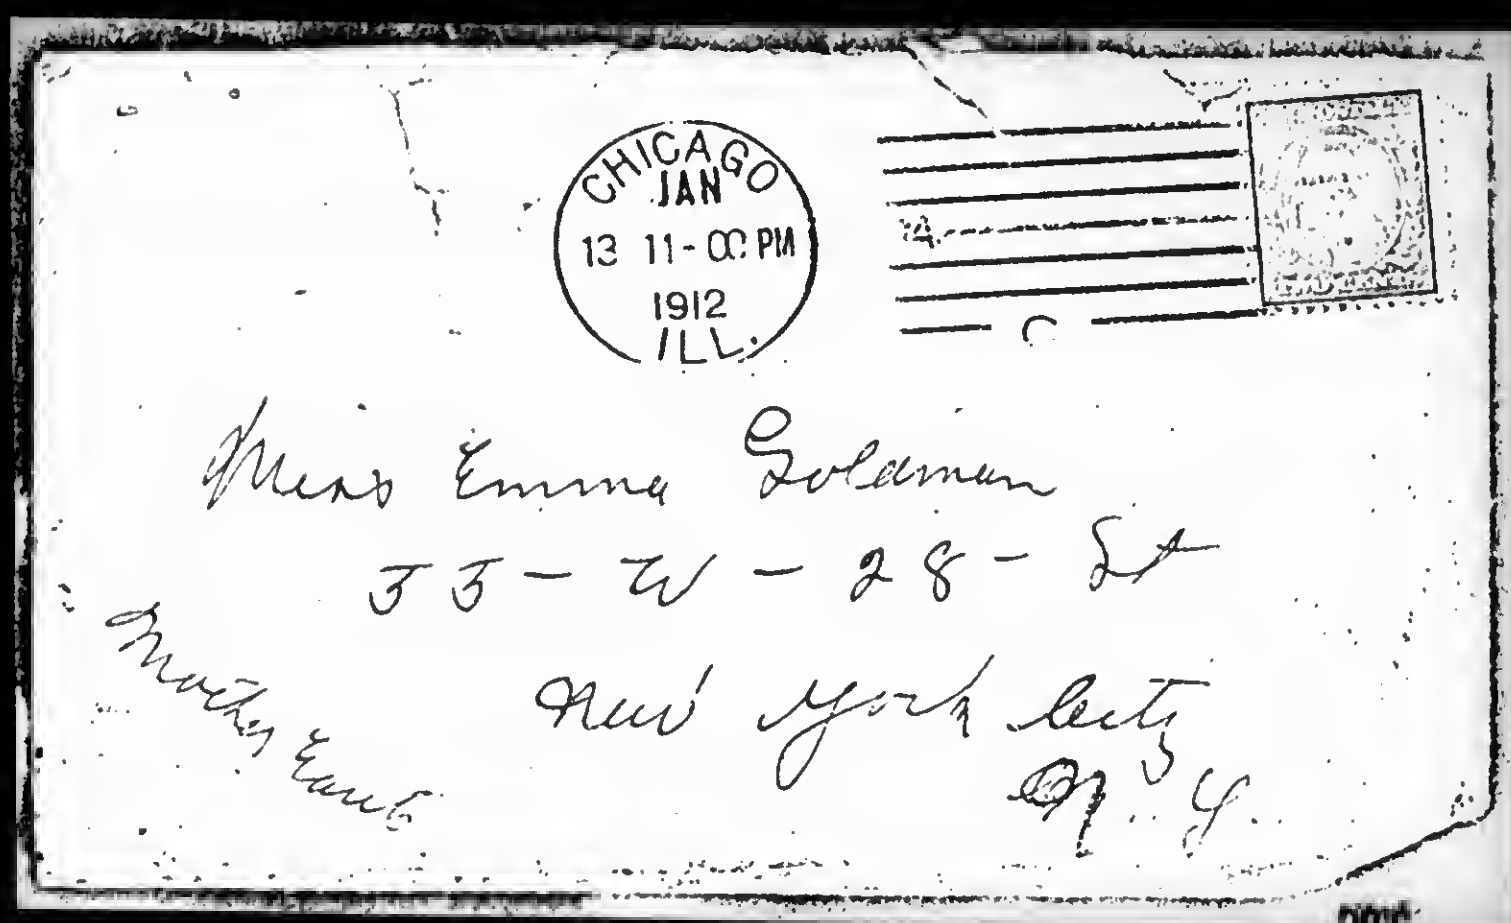 CHICAGO
JAN
13 11-00 PM
1912
ILL.
Miss Emma Goldman
55 - W - 28 - St
New York City
N. Y.
Mother Earth